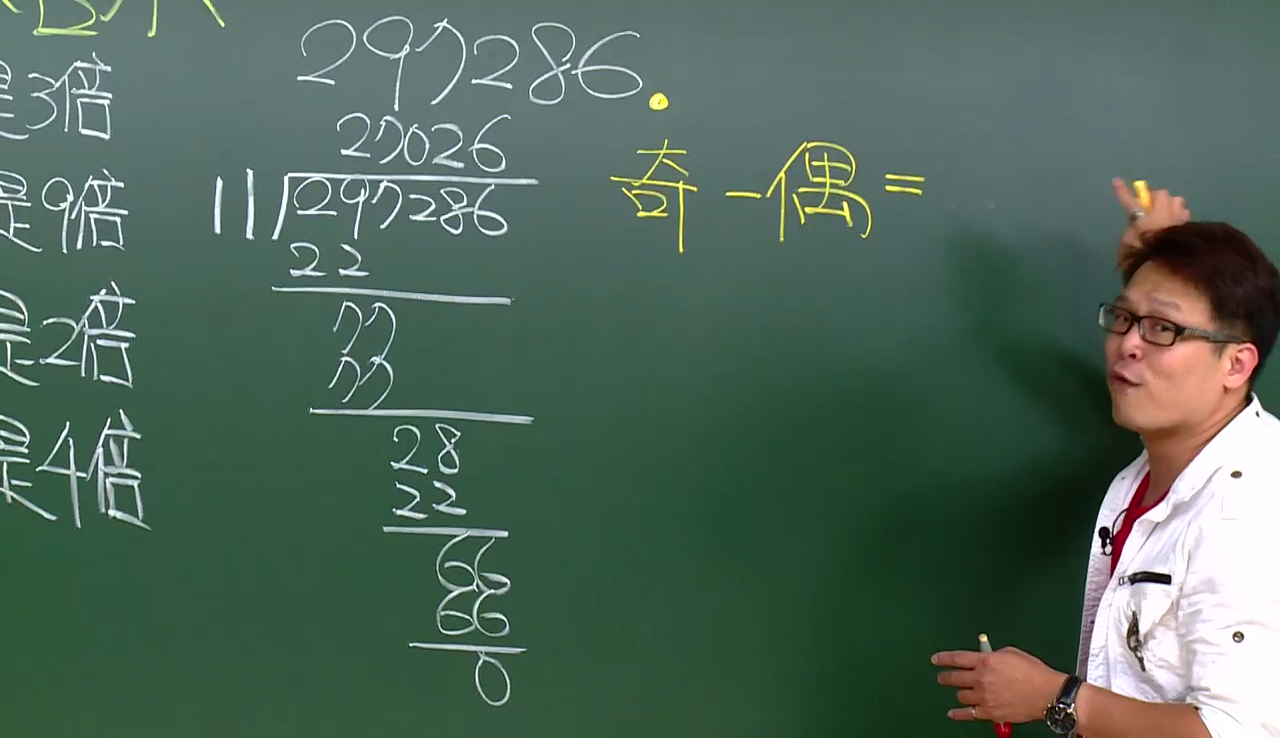 是3倍
是9倍
是2倍
是4倍
297286.
27026
11 297286
22
77
77
28
22
66
66
0
奇-偶=